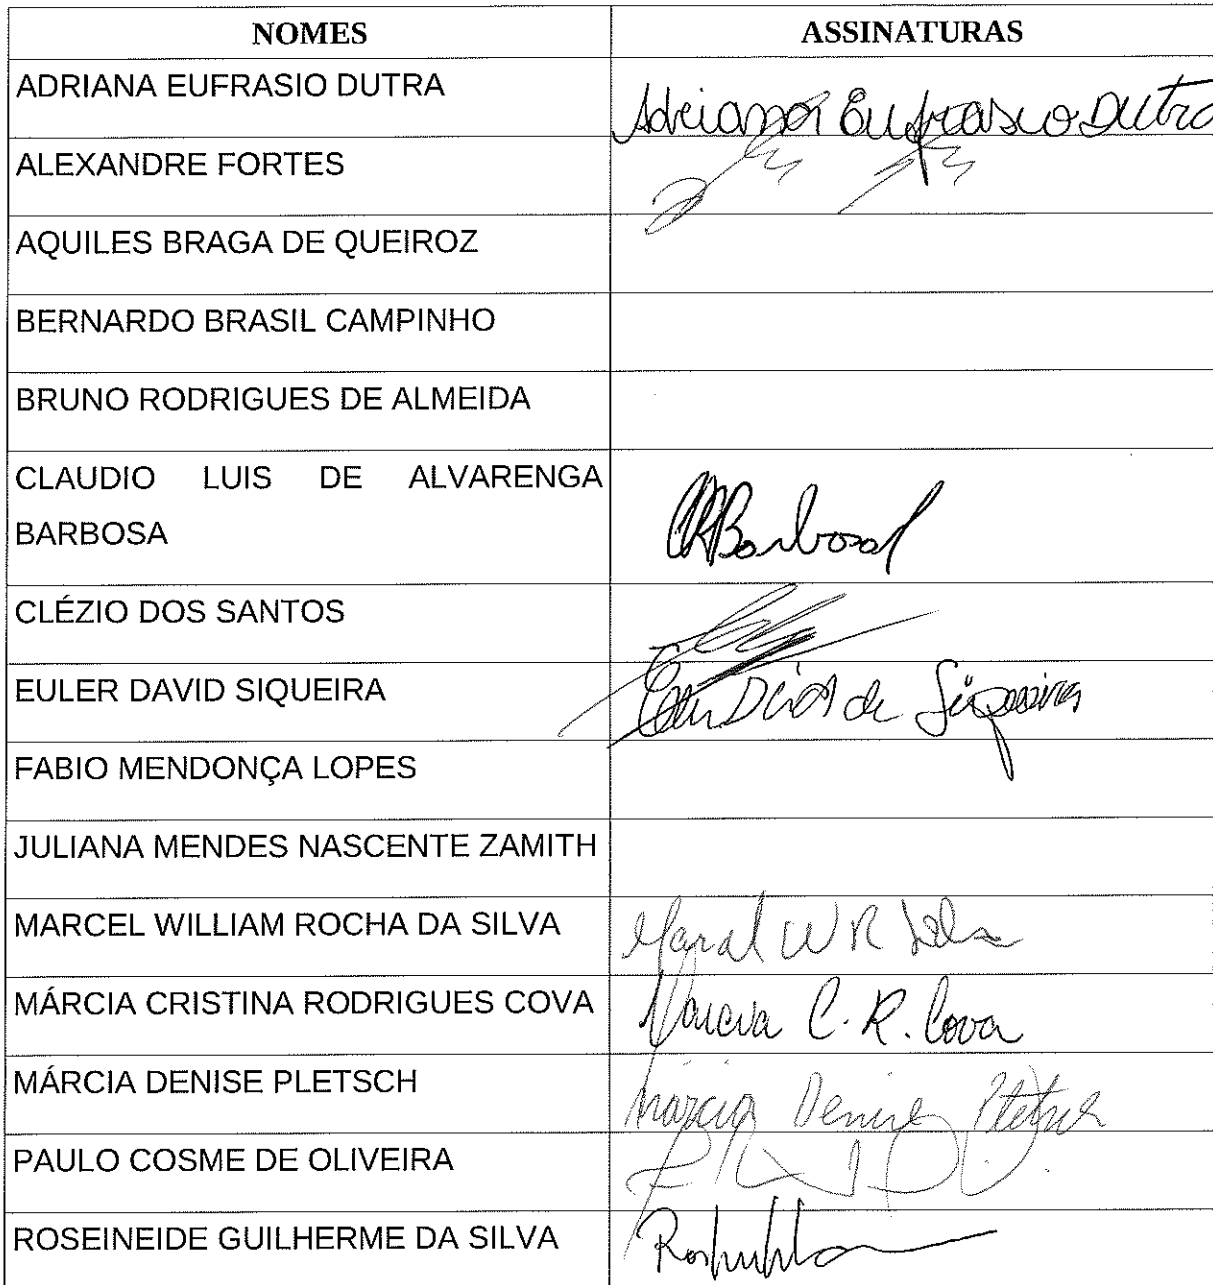 NOMES ASSINATURAS
ADRIANA EUFRASIO DUTRA Adriana Eufrasio Dutra
ALEXANDRE FORTES
AQUILES BRAGA DE QUEIROZ
BERNARDO BRASIL CAMPINHO
BRUNO RODRIGUES DE ALMEIDA
CLAUDIO LUIS DE ALVARENGA
BARBOSA Barbosa
CLÉZIO DOS SANTOS
EULER DAVID SIQUEIRA de Siqueira
FABIO MENDONÇA LOPES
JULIANA MENDES NASCENTE ZAMITH
MARCEL WILLIAM ROCHA DA SILVA Marcel W R Silva
MÁRCIA CRISTINA RODRIGUES COVA Marcia C. R. Cova
MÁRCIA DENISE PLETSCH Márcia Denise Pletsch
PAULO COSME DE OLIVEIRA
ROSEINEIDE GUILHERME DA SILVA